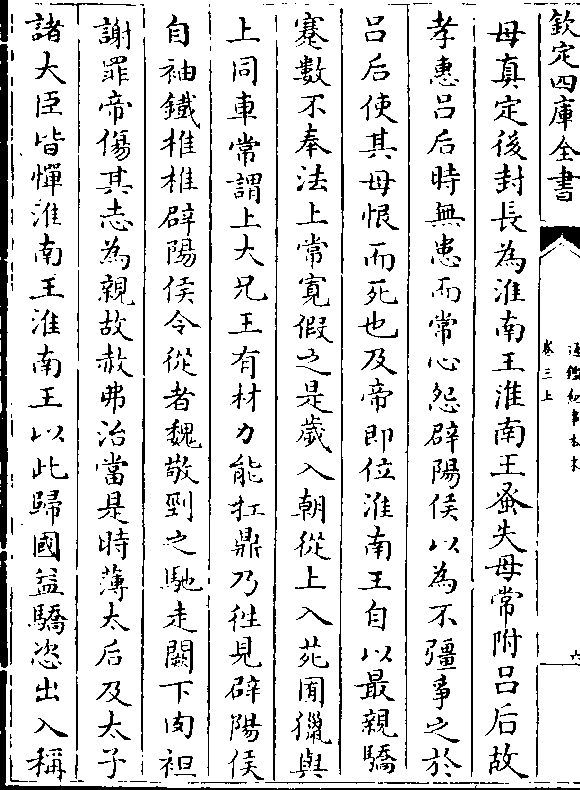 欽定四庫全書
通鑑紀事本末
卷三上
六
母真定後封長為淮南王淮南王蚤失母常附吕后故
孝惠吕后時無患而常心怨辟陽侯以為不彊争之於
吕后使其母恨而死也及帝即位淮南王自以最親驕
蹇數不奉法上常寛假之是歲入朝從上入苑囿獵與
上同車常謂上大兄王有材力能扛鼎乃往見辟陽侯
自袖鐵椎椎辟陽侯令從者魏敬剄之馳走闕下肉袒
謝罪帝傷其志為親故赦弗治當是時薄太后及太子
諸大臣皆憚淮南王淮南王以此歸國益驕恣出入稱